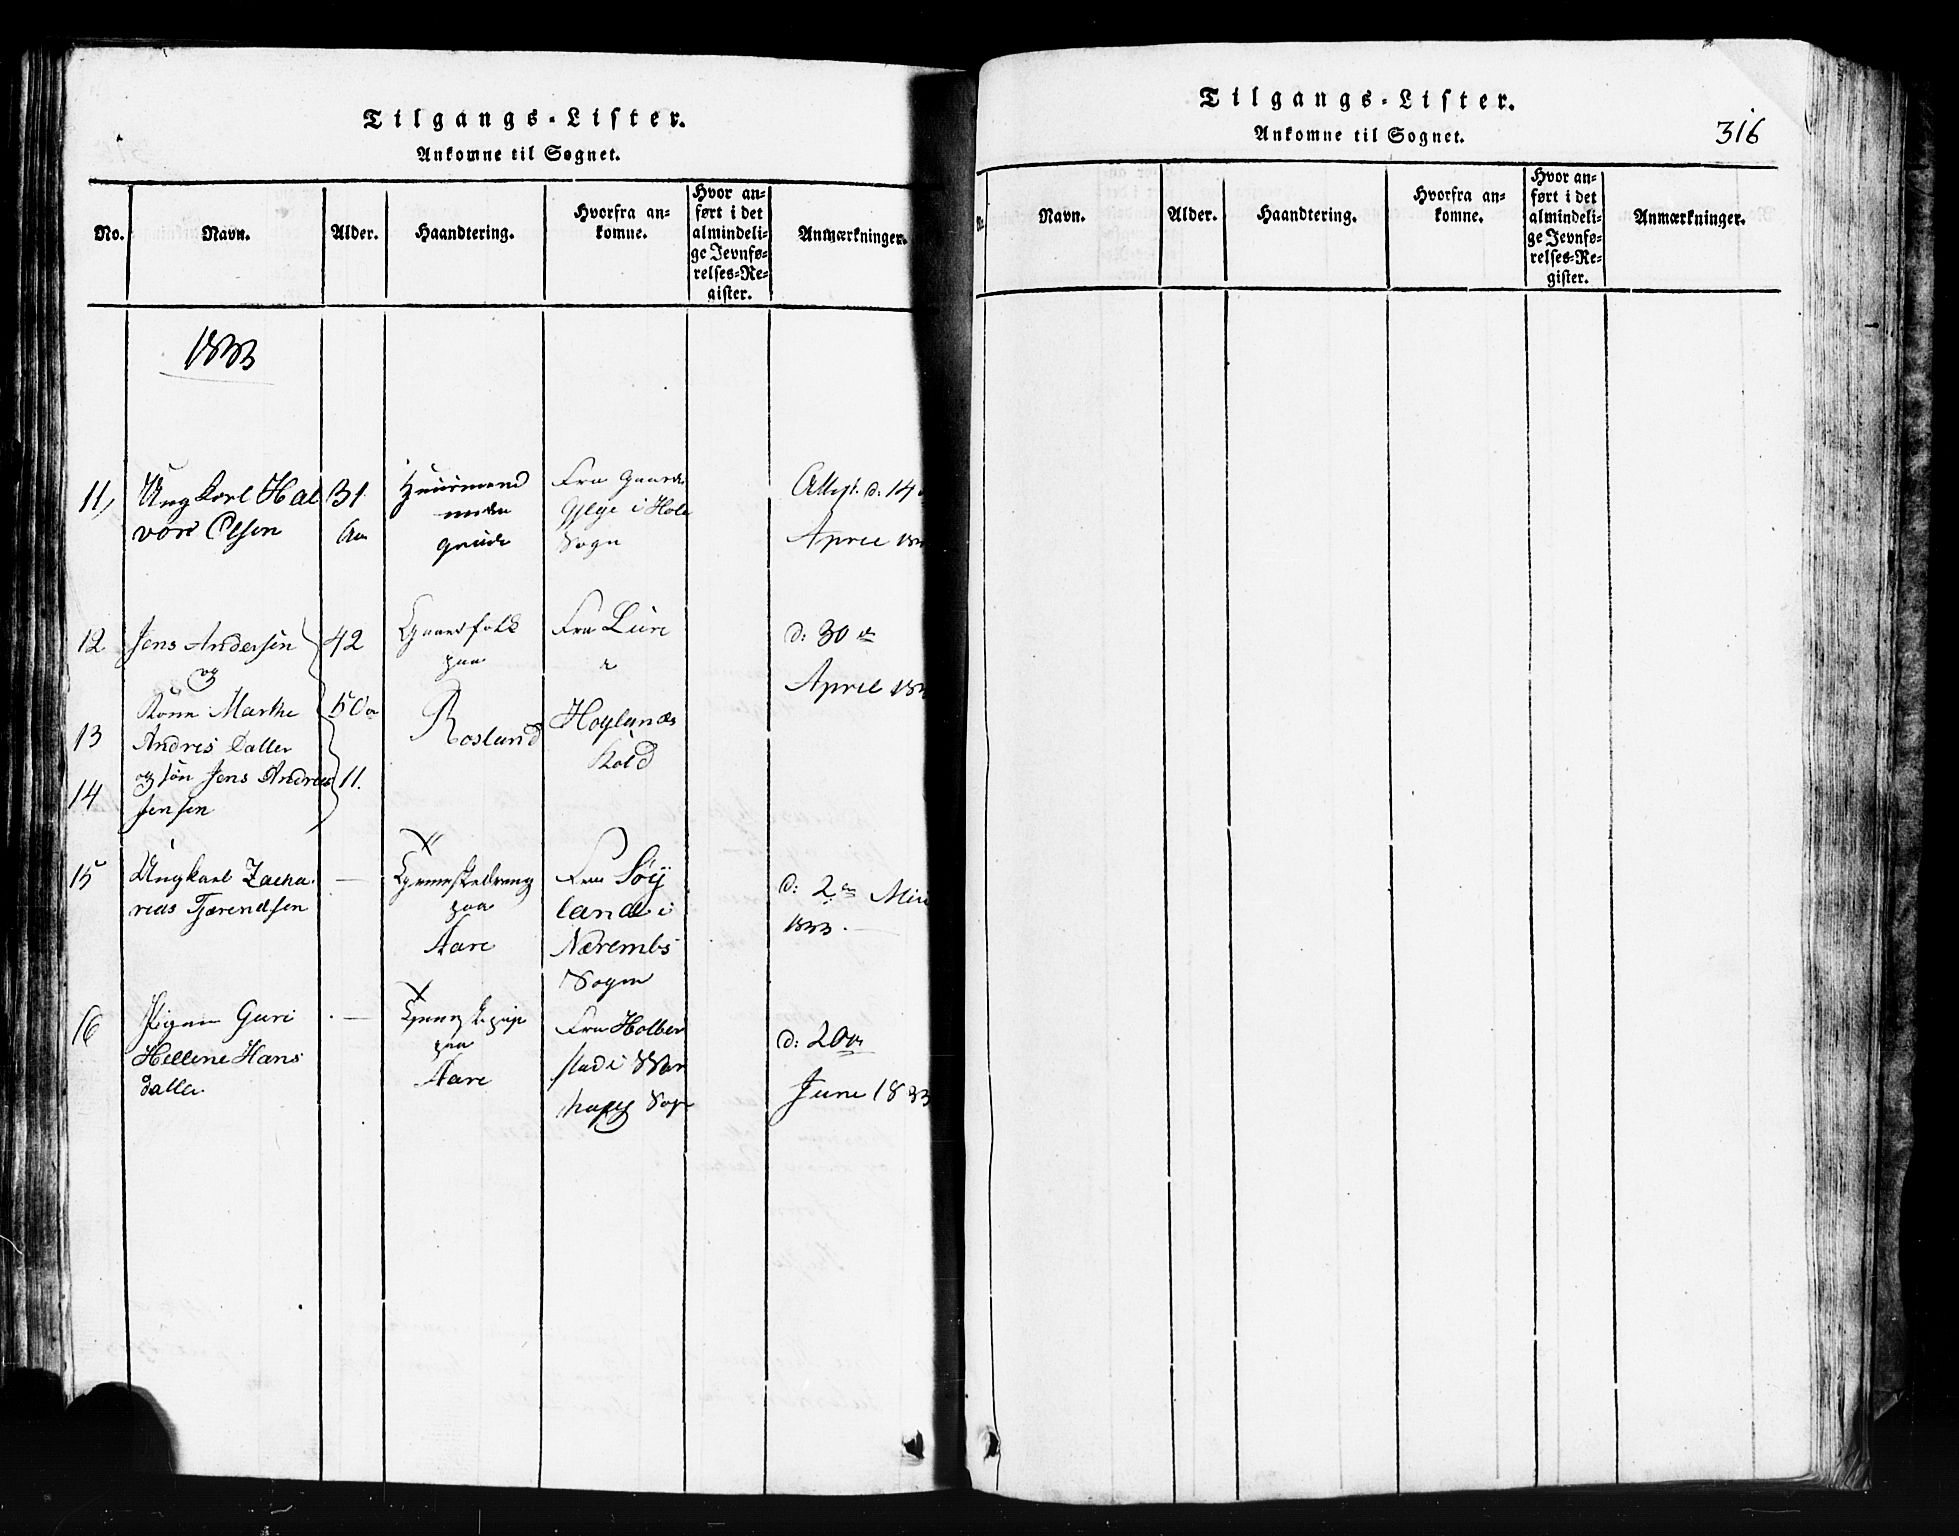 Tilgangs-Lister.
Ankomne til Sognet.
No.
Navn.
Alder.
Haandtering.
Hvorfra an-
komne.
Hvor an-
ført i det
almindeli-
ge Jevnfø-
relses-Re-
gister.
Anmærkninger.
1833
11,
Ungkarl Hal
vor Olsen
31
Huusmand
under
Fra Gaard
i Hole
Sogn
Attest. d: 14
April
12
Jens Andersen
og
42
Gaardfolk
paa
Fra Lure
d: 30
April
13
Kone Marthe
Andris Datter
50
Rosland
Høylands
14
og søn Jens Andreas
Jensen
11.
15
Ungkarl Zacha
rias Tjærendsen
—
Tjenestedreng
paa
Aare
Fra Søy
land i
Nærembs
Sogn
d: 2
1833.
16
Pigen Guri
Hellene Hans
datter
—
paa
Aare
Fra Holber
stad i War
houg Sogn
d: 20
June 1833
Tilgangs-Lister.
Ankomne til Sognet.
316
Navn.
Alder.
Haandtering.
Hvorfra an-
komne.
Hvor an-
ført i det
almindeli-
ge Jevnfø-
relses-Re-
gister.
Anmærkninger.